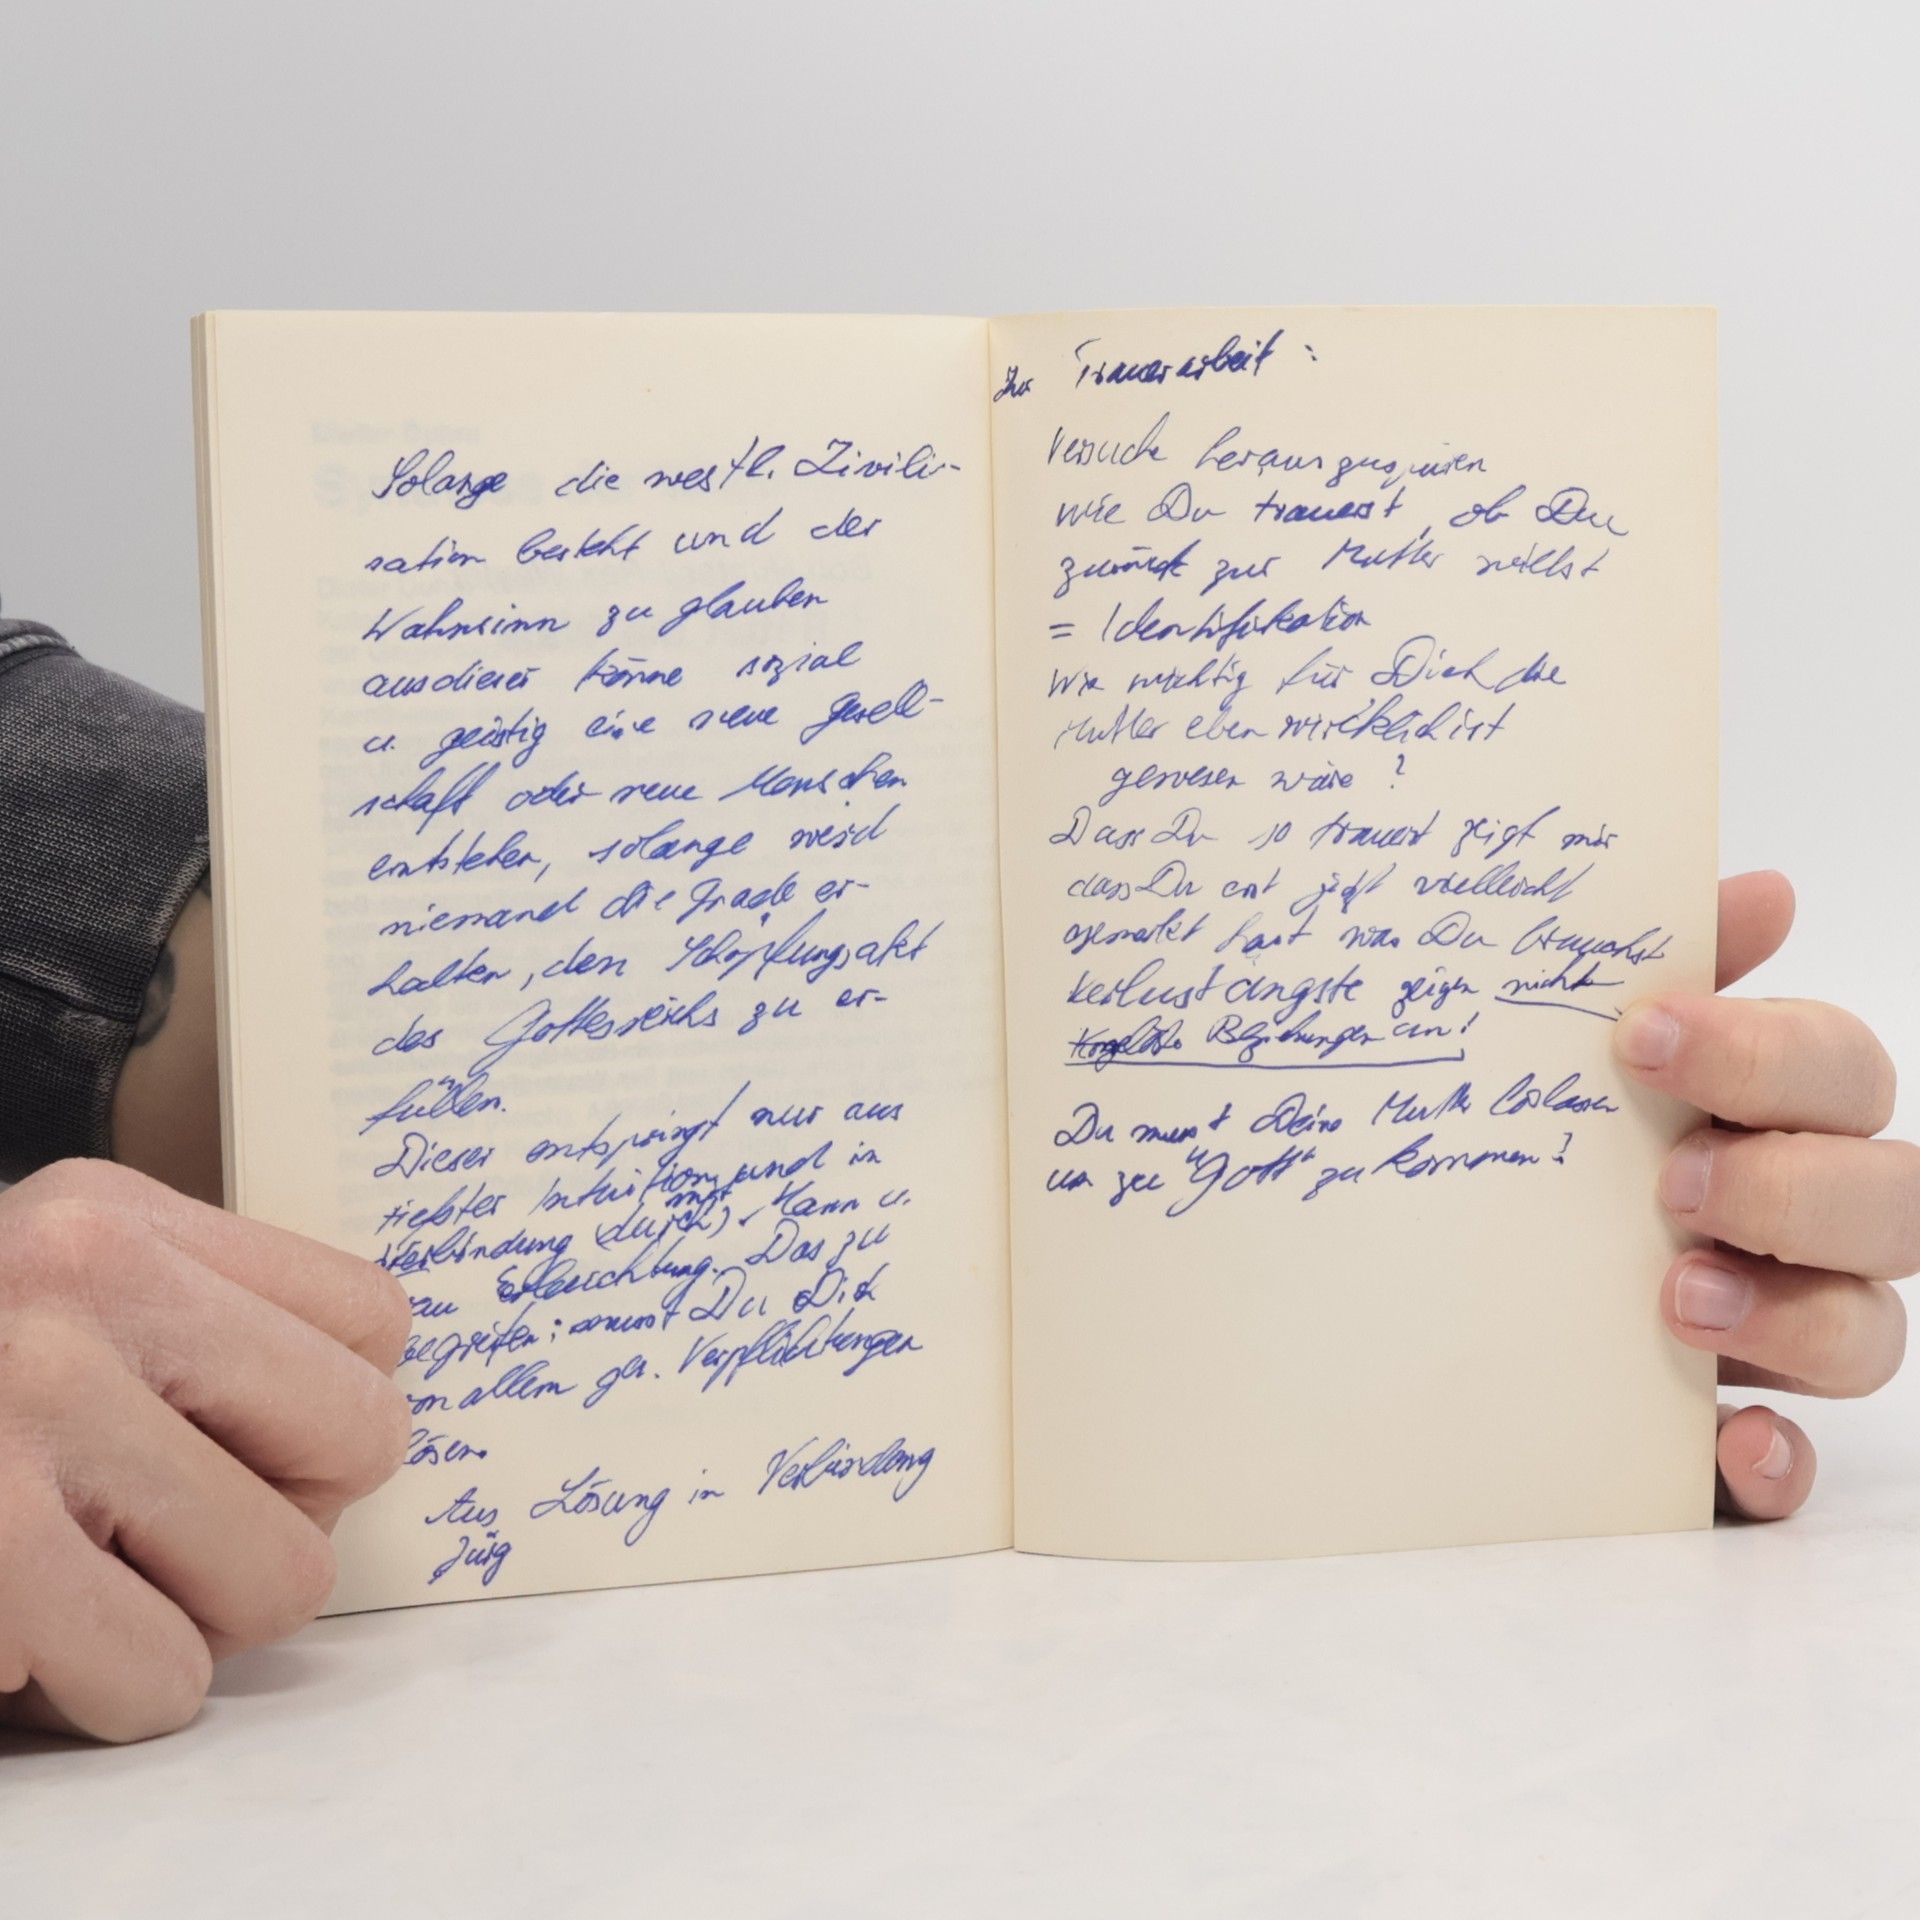 Solange die westl. Zivili-
sation besteht und der
Wahnsinn zu glauben
aus dieser könne sozial
u. geistig eine neue Gesell-
schaft oder neue Menschen
entstehen, solange wird
niemand die Gnade er-
halten, den Schöpfungsakt
des Gottesreichs zu er-
füllen.
Dieser entspringt nur aus
tiefster Intuition und in
mit
Verbindung (durch) Mann u.
au Erleuchtung. Das zu
begreifen: musst Du Dich
von allem ges. Verpflichtungen
lösen.
Aus Lösung in Verbindung
Jürg
Zur Trauerarbeit:
Versuche herauszuspüren
wie Du trauerst, ob Du
zurück zur Mutter willst
= Identifikation
Wie wichtig für Dich die
Mutter eben wirklich ist
gewesen wäre?
Dass Du so trauerst zeigt mir
dass Du erst jetzt vielleicht
gemerkt hast was Du brauchst
Verlustängste zeigen nicht
Beziehungen an!
Du musst Deine Mutter loslassen
um zu "Gott" zu kommen!